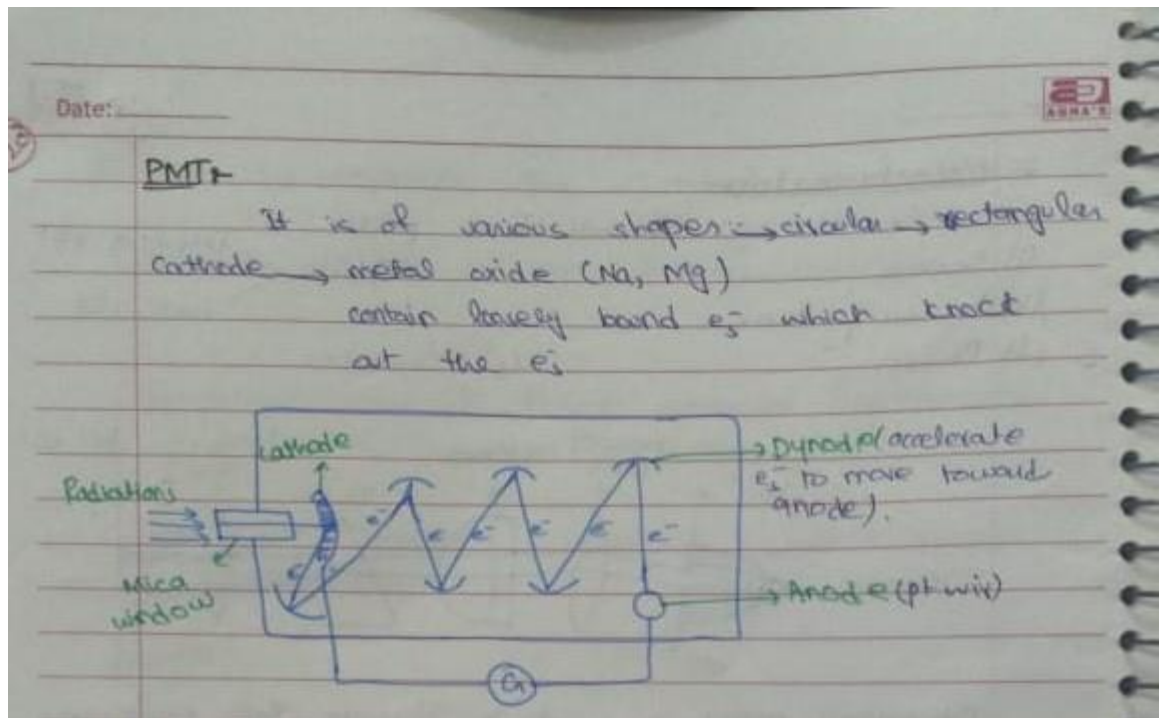 Date:
AGHA'S
PMT:
It is of various shapes :→ circular → rectangular
Cathode → metal oxide (Na, Mg)
contain loosely bound e⁻s which knock
out the e⁻s
Cathode
Radiations
Mica
window
e⁻
e⁻
e
e⁻
e⁻
e⁻
e⁻
→ Dynode (accelerate
e⁻s to move toward
anode).
→ Anode (pt wir)
G